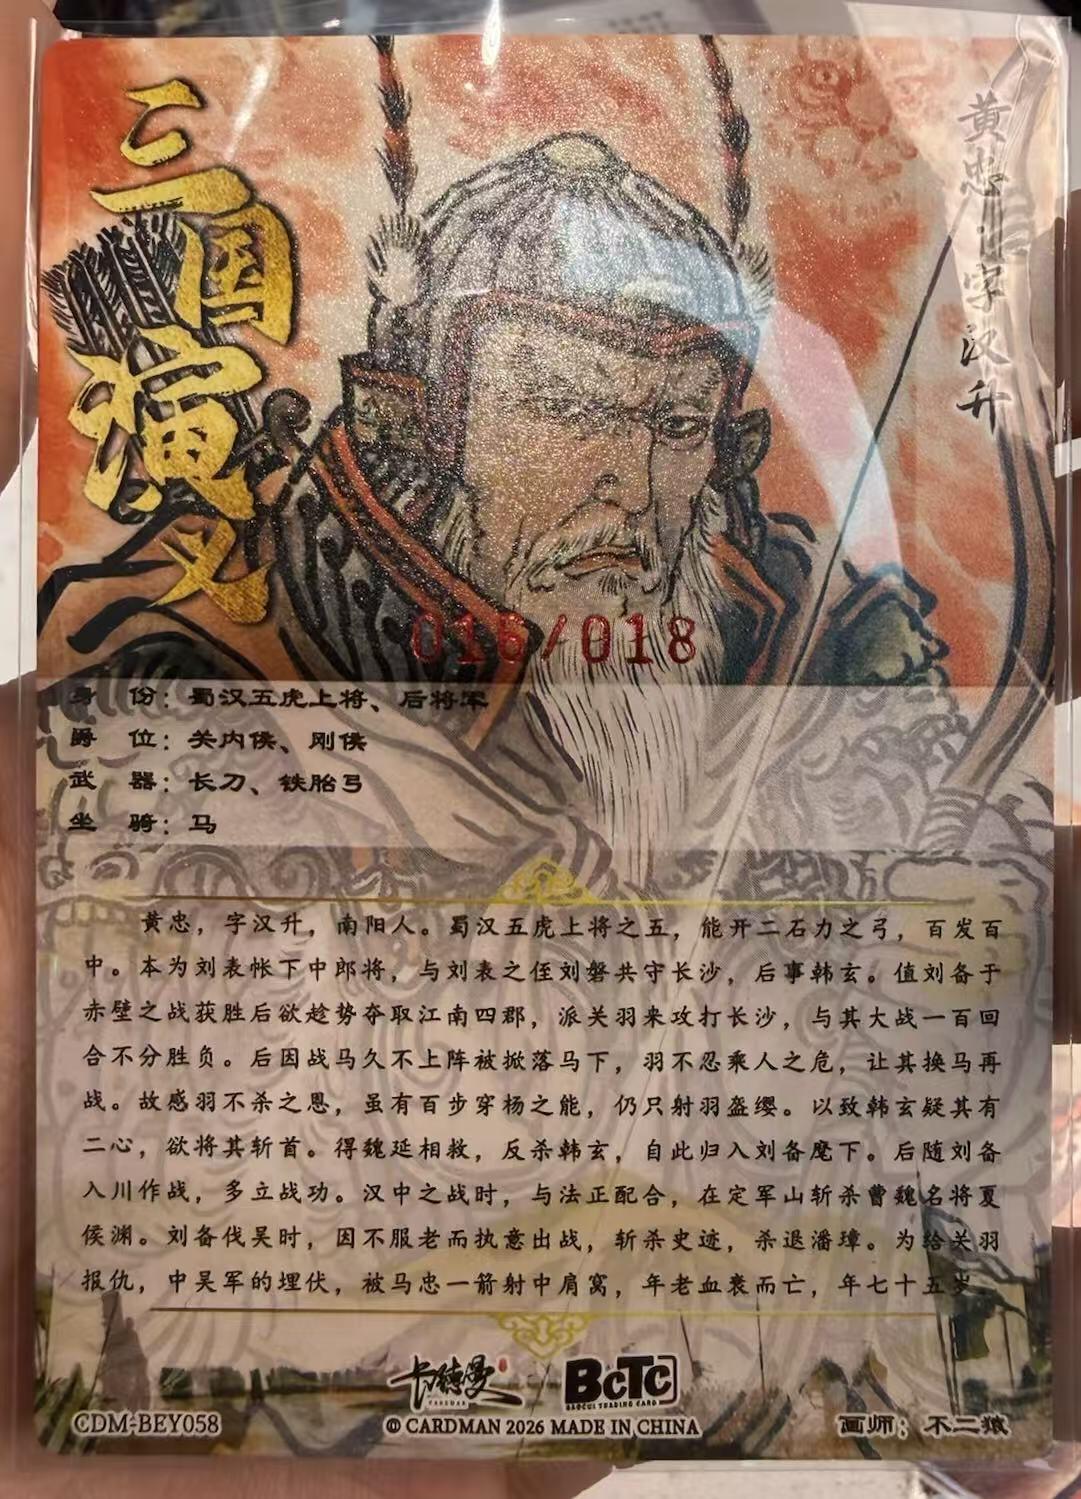 三国演义
黄忠 字汉升
016/018
身 份：蜀汉五虎上将、后将军
爵 位：关内侯、刚侯
武 器：长刀、铁胎弓
坐 骑：马
黄忠，字汉升，南阳人。蜀汉五虎上将之五，能开二石力之弓，百发百
中。本为刘表帐下中郎将，与刘表之侄刘磐共守长沙，后事韩玄。值刘备于
赤壁之战获胜后欲趁势夺取江南四郡，派关羽来攻打长沙，与其大战一百回
合不分胜负。后因战马久不上阵被掀落马下，羽不忍乘人之危，让其换马再
战。故感羽不杀之恩，虽有百步穿杨之能，仍只射羽盔缨。以致韩玄疑其有
二心，欲将其斩首。得魏延相救，反杀韩玄，自此归入刘备麾下。后随刘备
入川作战，多立战功。汉中之战时，与法正配合，在定军山斩杀曹魏名将夏
侯渊。刘备伐吴时，因不服老而执意出战，斩杀史迹，杀退潘璋。为给关羽
报仇，中吴军的埋伏，被马忠一箭射中肩窝，年老血衰而亡，年七十五岁。
卡德曼
CARDMAN
BCTC
BAOCUI TRADING CARD
CDM-BEY058
© CARDMAN 2026 MADE IN CHINA
画师：不二猿